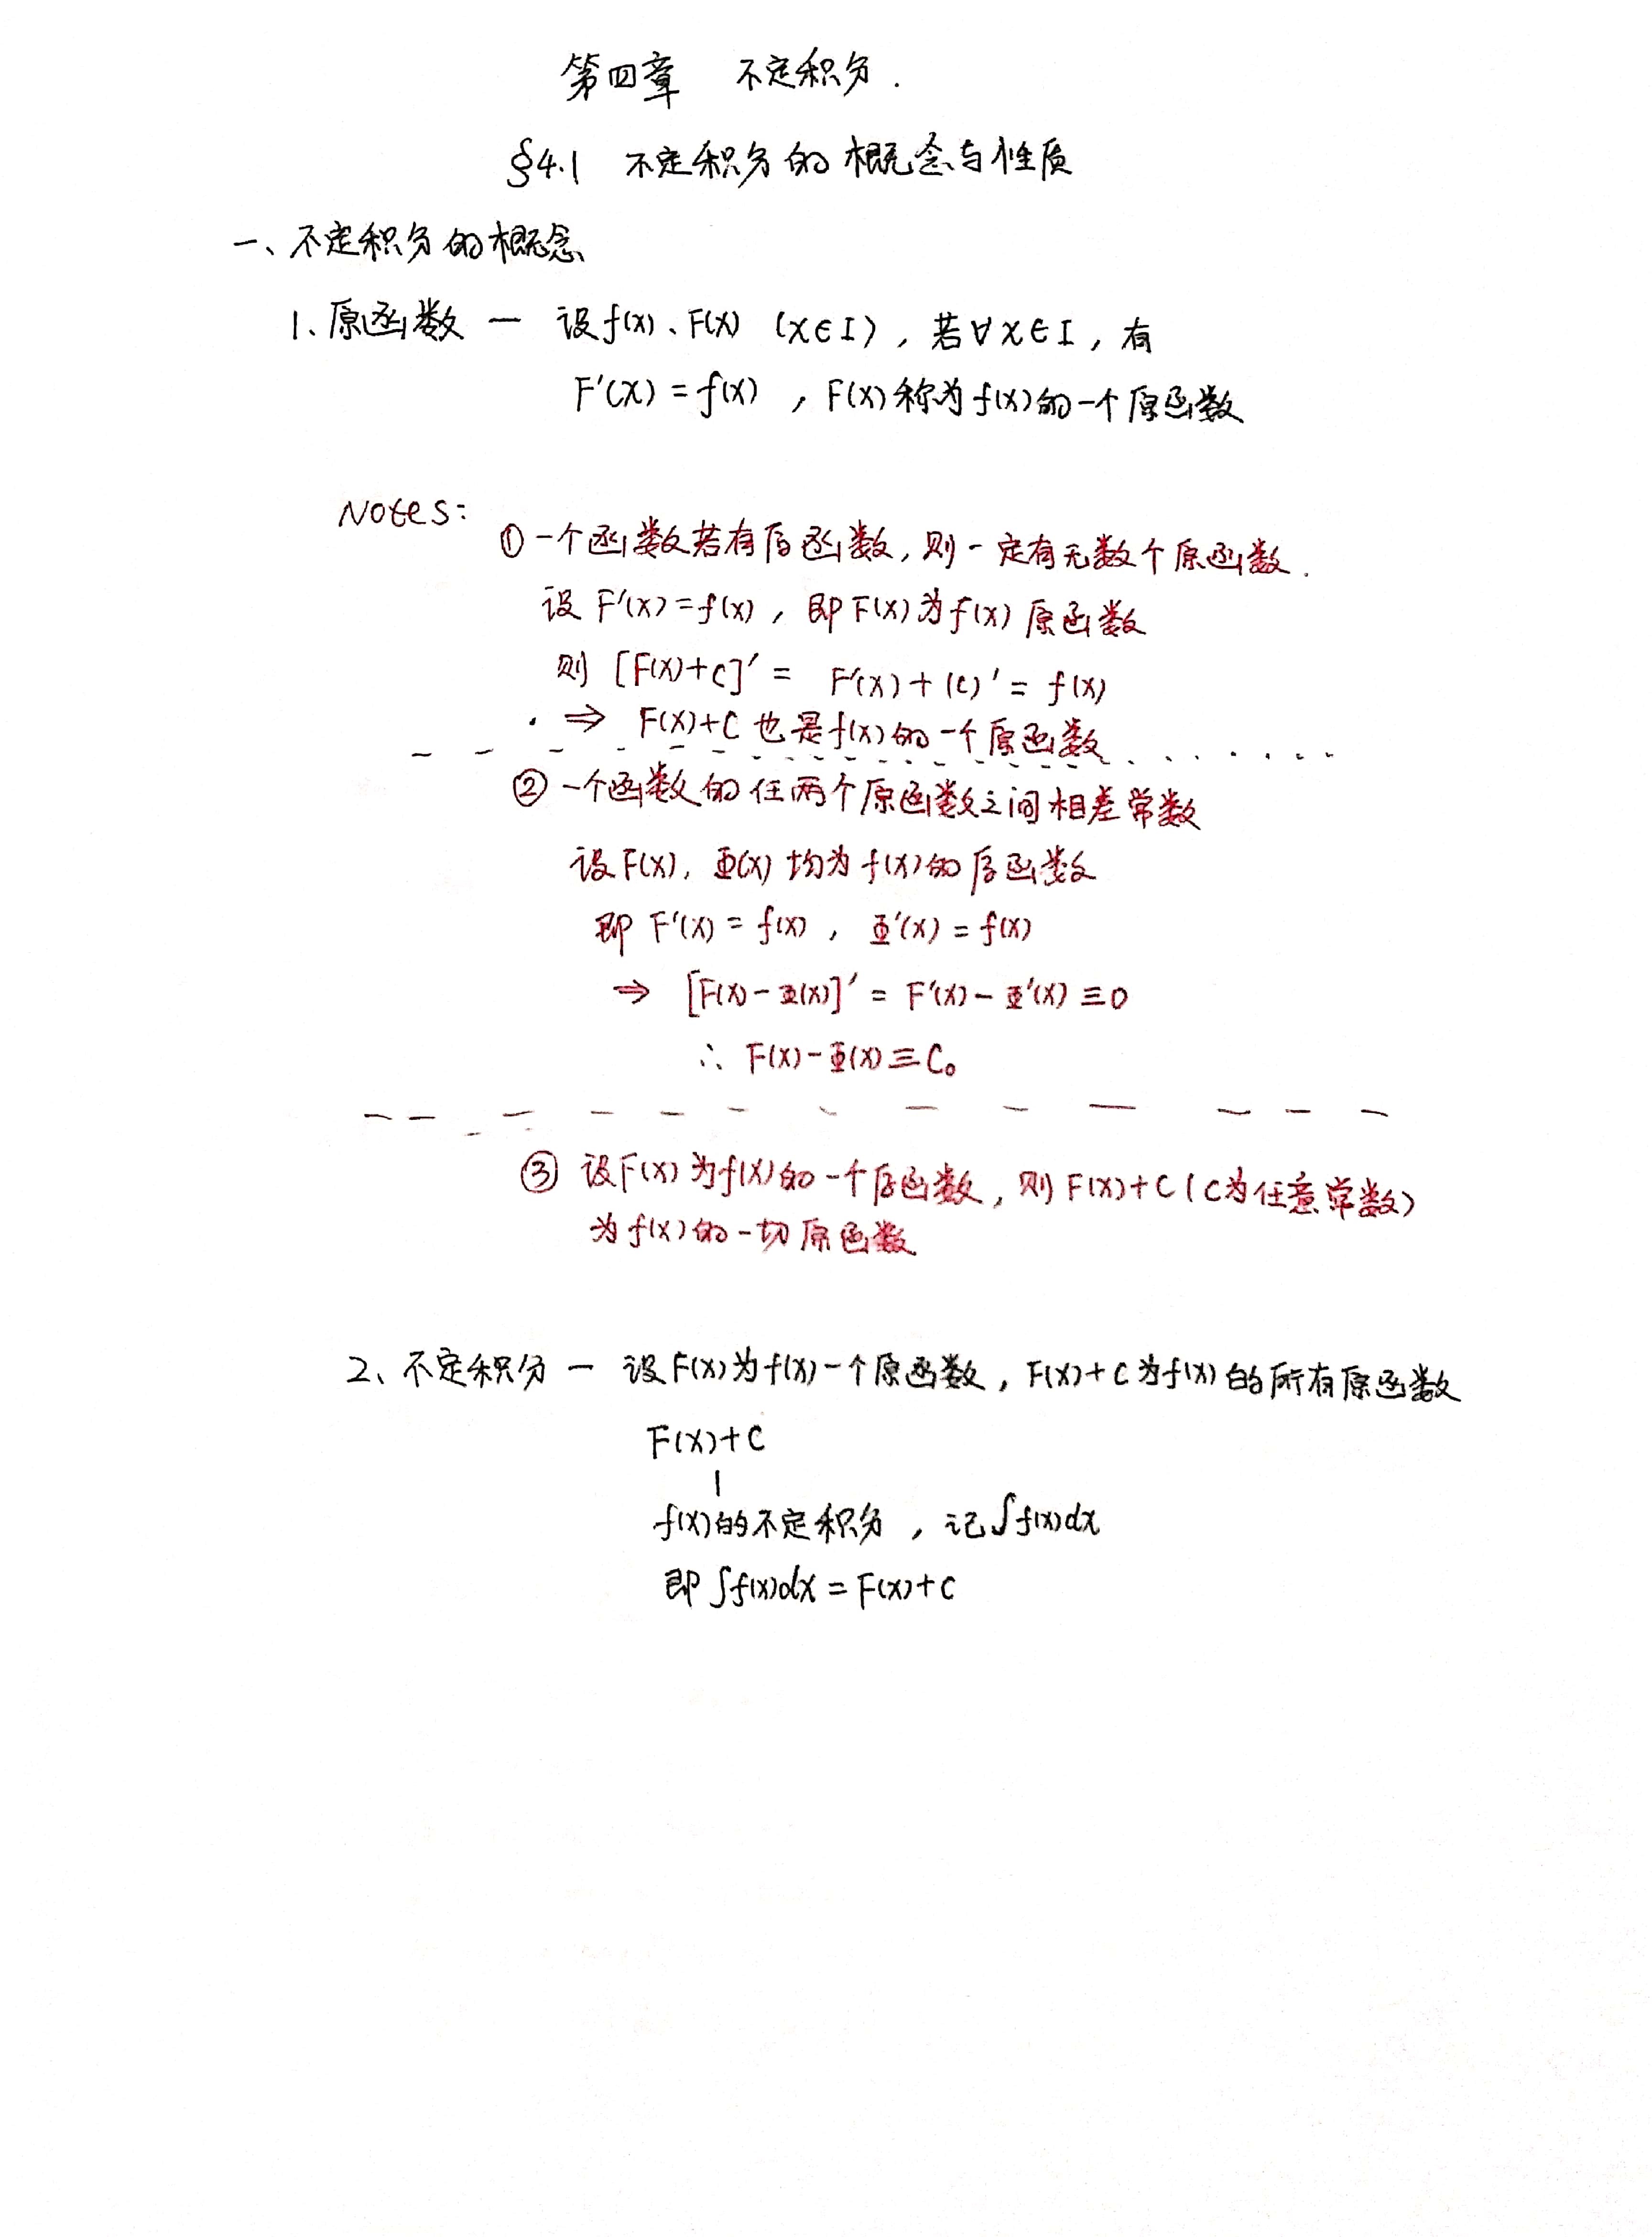 第四章 不定积分.
§4.1 不定积分的概念与性质
一、不定积分的概念
1、原函数 — 设f(x)、F(x) (x∈I), 若∀x∈I, 有
F'(x)=f(x), F(x)称为f(x)的一个原函数
Notes:
① 一个函数若有原函数, 则一定有无数个原函数.
设 F'(x)=f(x), 即F(x)为f(x)原函数
则 [F(x)+C]' = F'(x)+(C)' = f(x)
⇒ F(x)+C 也是f(x)的一个原函数
② 一个函数的任两个原函数之间相差常数
设F(x), Φ(x)均为f(x)的原函数
即 F'(x)=f(x), Φ'(x)=f(x)
⇒ [F(x)-Φ(x)]' = F'(x)-Φ'(x)≡0
∴ F(x)-Φ(x)≡C₀
③ 设F(x)为f(x)的一个原函数, 则F(x)+C(C为任意常数)
为f(x)的一切原函数
2、不定积分 — 设F(x)为f(x)一个原函数, F(x)+C为f(x)的所有原函数
F(x)+C
f(x)的不定积分, 记∫f(x)dx
即∫f(x)dx=F(x)+C